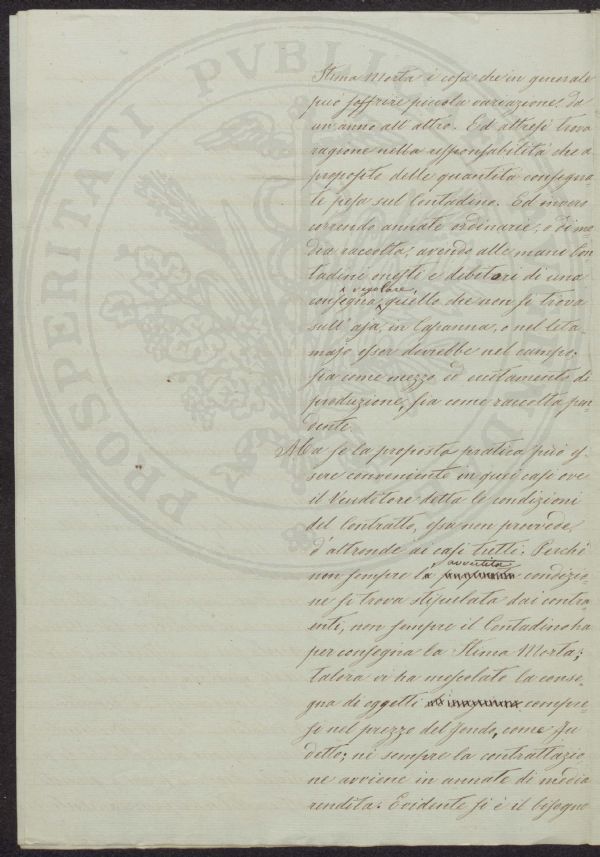 Stima Morta è cosa che in generale
può soffrire piccola variazione da
un'anno all'altro. Ed altresì trova
ragione nella responsabilità che a
proposito delle quantità consegna-
te pesa sul Contadino. Ed invero
correndo annate ordinarie, o di me
dia raccolta; avendo alle mani Con
tadine onesti e debitori di una
regolare,
consegna, quello che non si trova
sull'aja, in Capanna, o nel leta
majo esser dovrebbe nel campo;
sia come mezzo ed eccitamento di
produzione, sia come raccolta pen-
dente.
Ma se la proposta pratica può es-
sere conveniente in quei casi ove
il Venditore detta le condizioni
del Contratto, essa non provvede
d'altronde ai casi tutti. Perché
avvertita
non sempre la condizio-
ne si trova stipulata dai contra-
enti, non sempre il Contadino ha
per consegna la Stima Morta;
talora vi ha mescolato la conse-
gna di oggetti compre-
si nel prezzo del fondo, come fu
detto; né sempre la contrattazio
ne avviene in annate di media
rendita. Evidente si è il bisogno
PROSPERITATI PVBLICAE